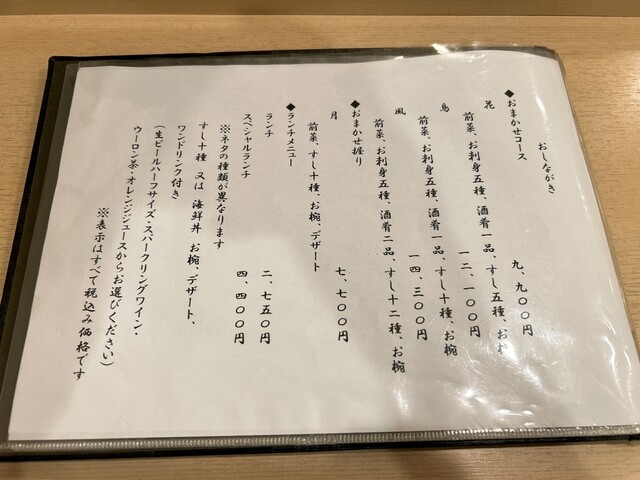 おしながき
◆おまかせコース
花 九、九〇〇円
前菜、お刺身五種、酒肴一品、すし五種、お椀
鳥 一二、一〇〇円
前菜、お刺身五種、酒肴一品、すし十種、お椀
風 一四、三〇〇円
前菜、お刺身五種、酒肴二品、すし十二種、お椀
◆おまかせ握り
月 七、七〇〇円
前菜、すし十種、お椀、デザート
◆ランチメニュー
ランチ 二、七五〇円
スペシャルランチ 四、四〇〇円
※ネタの種類が異なります
すし十種 又は 海鮮丼 お椀、デザート、
ワンドリンク付き
(生ビールハーフサイズ・スパークリングワイン・
ウーロン茶・オレンジジュースからお選びください)
※表示はすべて税込み価格です